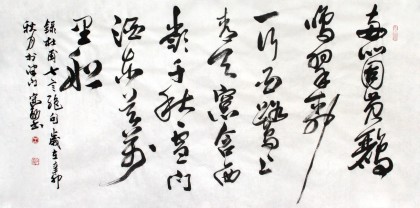 兩個黃鸝
鳴翠柳
一行白鷺上
青天窗含西
嶺千秋雪門
泊東吳萬
里船
錄杜甫七言絕句歲在辛卯
秋月於津門書